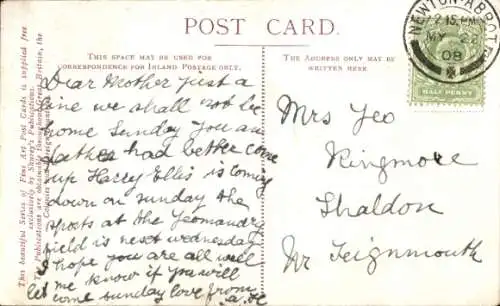 POST CARD.
THIS SPACE MAY BE USED FOR
CORRESPONDENCE FOR INLAND POSTAGE ONLY.
THE ADDRESS ONLY MAY BE
WRITTEN HERE
NEWTON-ABBOT
2 15 PM
MY 28
08
HALF PENNY
This beautiful Series of Fine Art Post Cards is supplied free
exclusively by Shurey's Publications.
The Publications are obtainable throughout Great Britain, the
Colonies and Foreign
Dear Mother Just a
line we shall not be
home Sunday You and
father had better come
up Harry Ellis is coming
down on sunday the
sports at the Yeomandry
field is next wednesday
I hope you are all well
let me know if you will
come sunday love from
Mrs Yeo
Ringmore
Shaldon
Nr Teignmouth